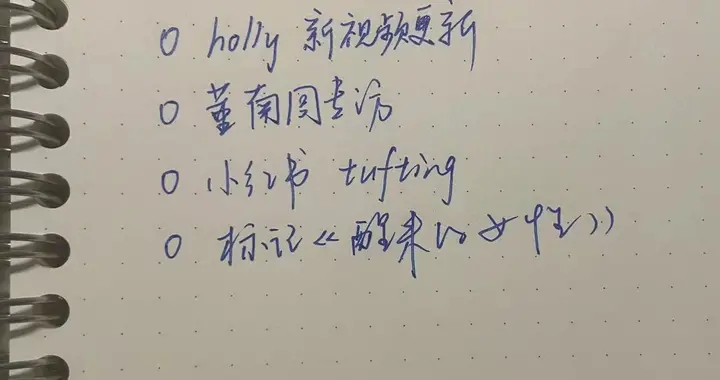 ○ holly 新视频更新
○ 董南图专访
○ 小红书 tufting
○ 标记《醒来的女性》